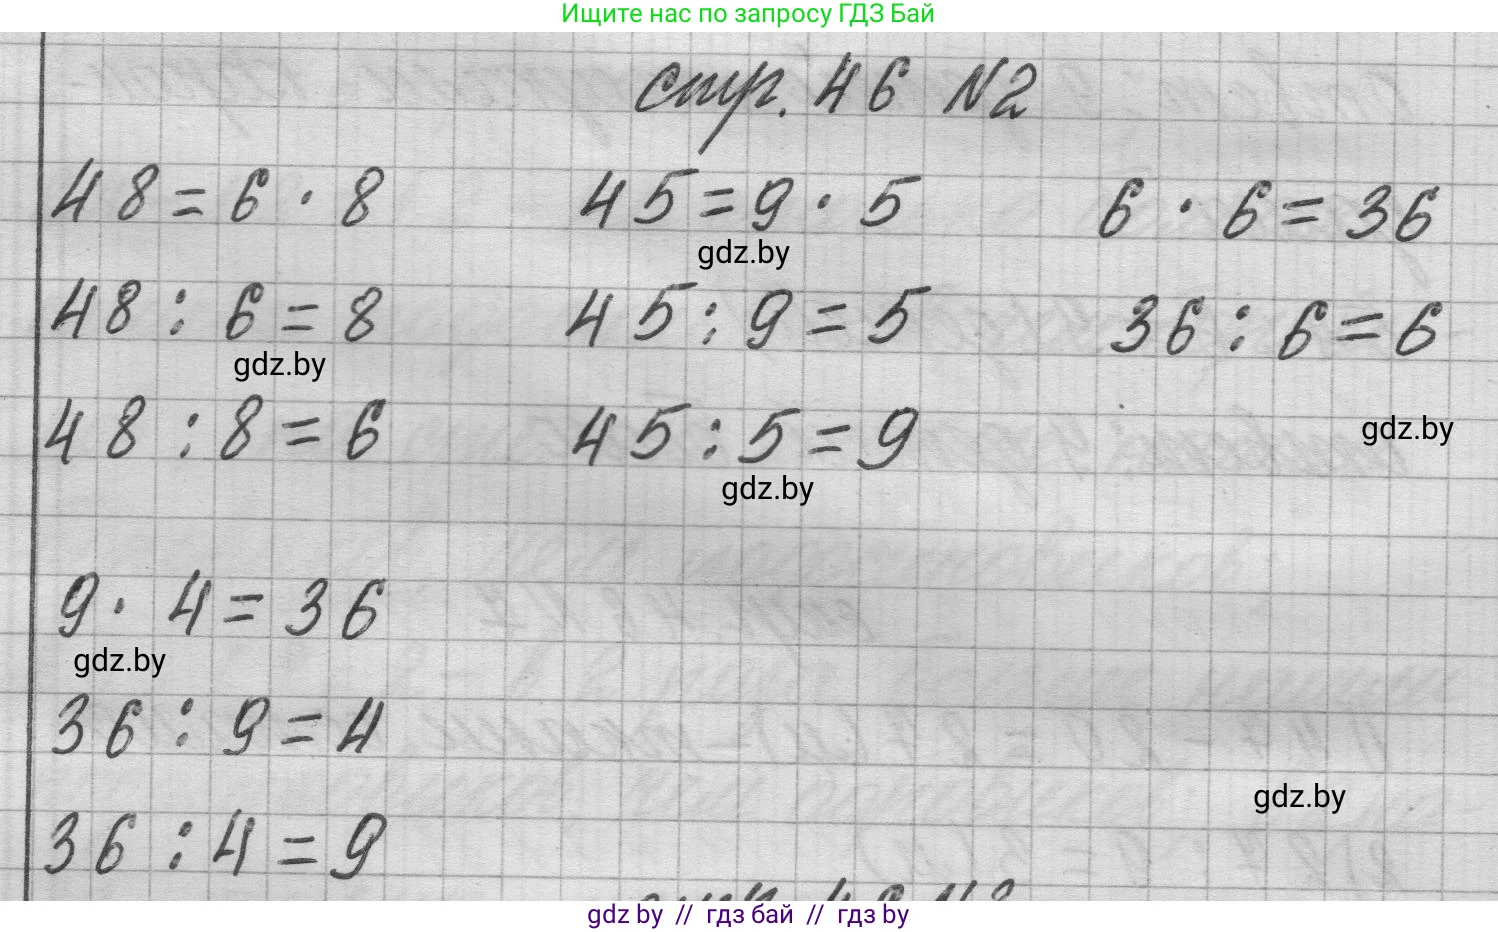 Ищите нас по запросу ГДЗ Бай
стр. 46 №2
48 = 6 · 8 45 = 9 · 5 6 · 6 = 36
gdz.by
48 : 6 = 8 45 : 9 = 5 36 : 6 = 6
gdz.by
48 : 8 = 6 45 : 5 = 9
gdz.by
gdz.by
9 · 4 = 36
gdz.by
36 : 9 = 4
gdz.by
36 : 4 = 9
gdz by // гдз бай // гдз by